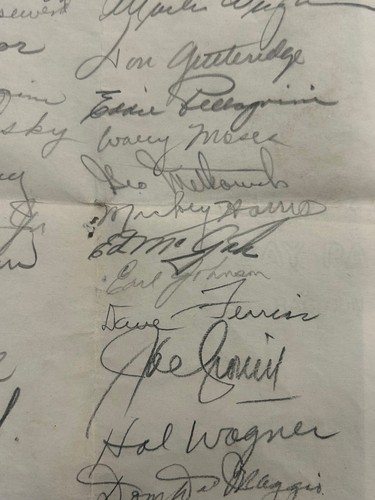 Charlie Wagner
Don Gutteridge
Eddie Pellagrini
sky Wally Moses
Geo Metkovich
Mickey Harris
Ed McGah
Earl Johnson
Dave Ferriss
Joe Cronin
Hal Wagner
Dom Di Maggio